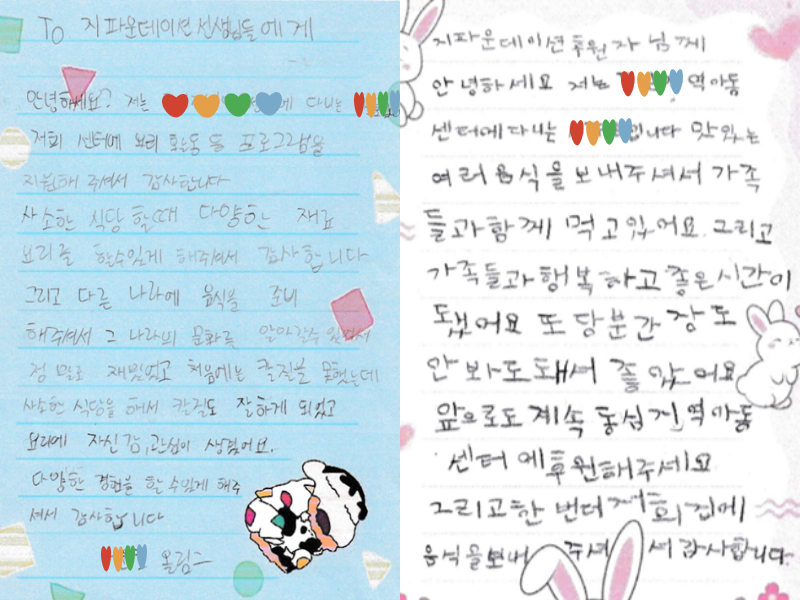 To 지파운데이션 선생님들에게
안녕하세요? 저는 에 다니는
저희 센터에 요리 활동 등 프로그램을
지원해 주셔서 감사합니다
사소한 식당 할때 다양한 재료
요리를 할수있게 해주셔서 감사합니다
그리고 다른 나라에 음식을 준비
해주셔서 그 나라의 문화를 알아갈수 있어서
정말로 재밌었고 처음에는 칼질을 못했는데
사소한 식당을 해서 칼질도 잘하게 되었고
요리에 자신감,관심이 생겼어요.
다양한 경험을 할 수있게 해주
셔서 감사합니다
올림-
지파운데이션 후원자님께
안녕하세요 저는 역아동
센터에 다니는 입니다 맛있는
여러음식을 보내주셔서 가족
들과함께 먹고있어요. 그리고
가족들과 행복하고 좋은시간이
됐어요 또 당분간 장도
안봐도돼서 좋았어요
앞으로도 계속 동심지역아동
센터에 후원해주세요
그리고한번더 저희집에
음식을보내 주셔서 감사합니다.